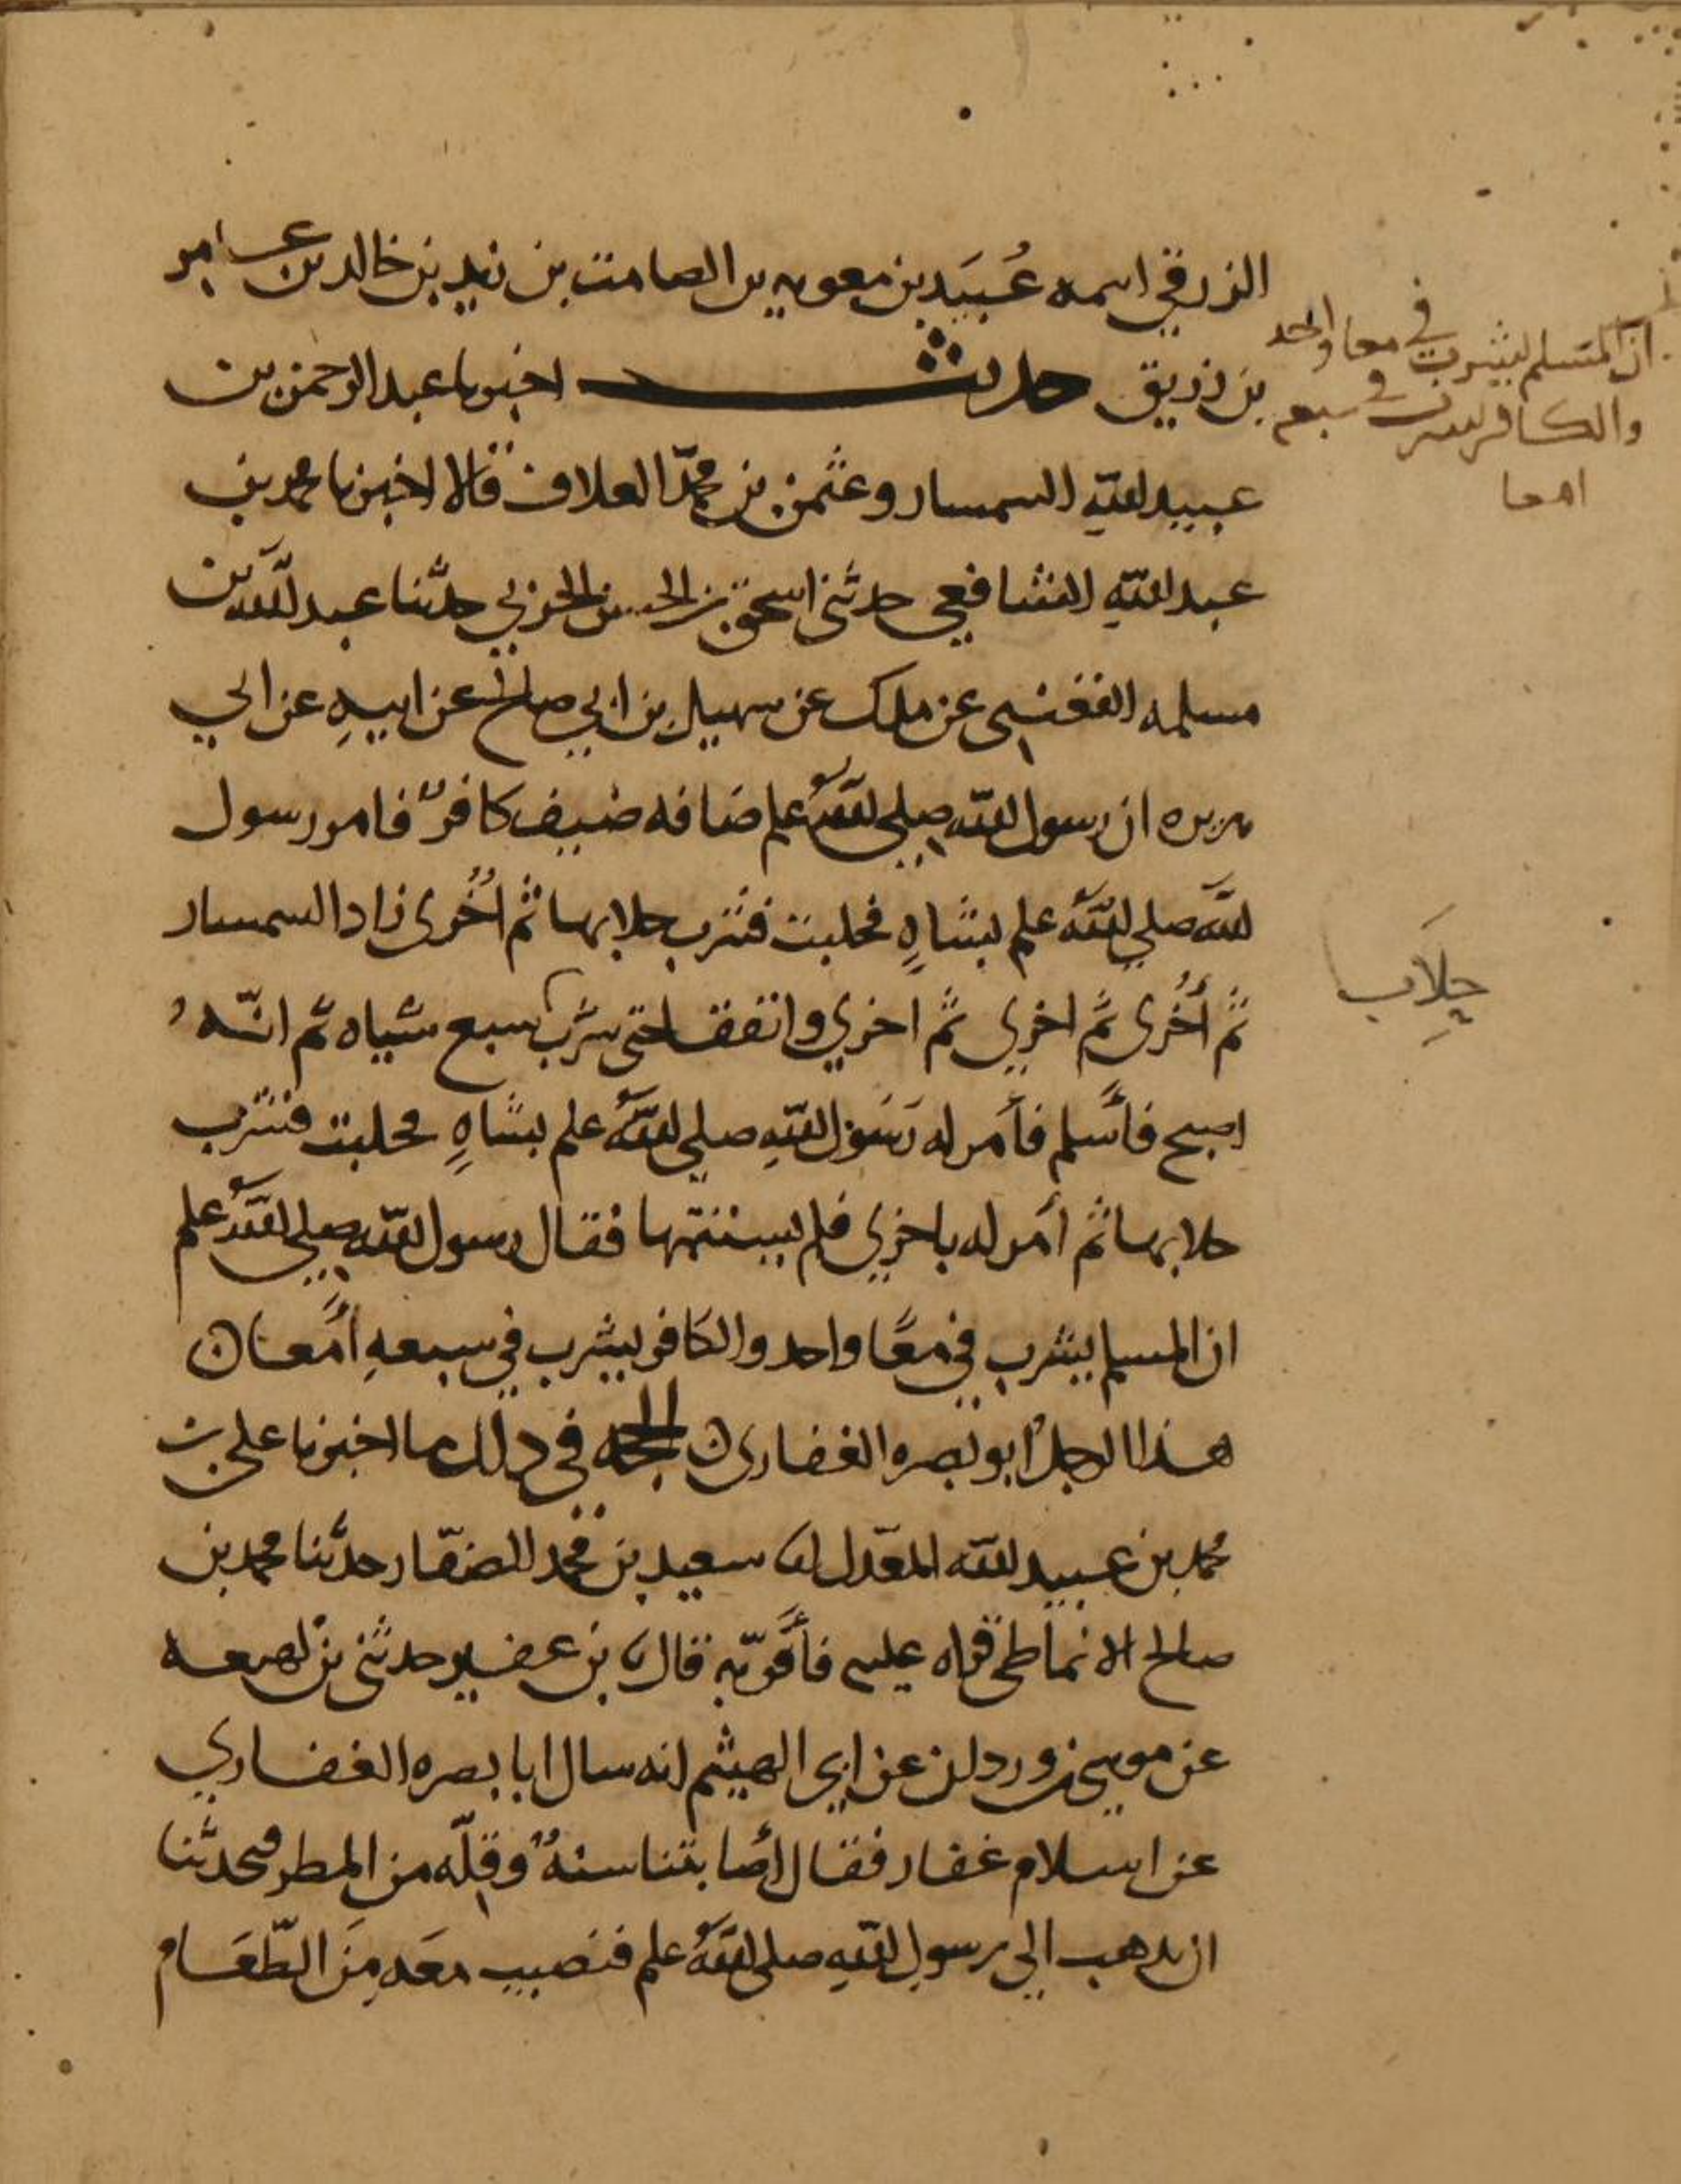 الزرقي اسمه عُبَيَد بن معويه بن الصامت بن زيد بن خالد بن عامر
بن زريق حديث اخبرنا عبد الرحمن بن
عبيد الله السمسار وعثمن بن محمّد العلاف قالا اخبرنا محمد بن
عبد الله الشافعي حدثني اسحق بن الحسن الحربي حدّثنا عبد الله بن
مسلمه القعنبي عن ملك عن سهيل بن ابي صالح عن ابيهِ عن ابي
هريره ان رسول الله صلى الله علم ضافه ضيف كافرٌ فامر رسول
الله صلي الله علم بشاهٍ فحلبت فشرب حلابها ثم اُخُرى زاد السمسار
ثم أُخُرى ثم اخرى ثم اخري واتفقا حتى شرب سبع شياه ثم انّهُ
اصبح فأسلم فأمر له رَسَول الله صلي الله علم بشاهٍ فحلبت فشرب
حلابها ثم أمر له باخري فلم يستتمها فقال رسول الله صلي الله علم
ان المسلم يشرب في معًا واحد والكافر يشرب في سبعهِ أمعا ن
هذا الرجل ابو بصره الغفاري ن الحجه في ذلك ما اخبرنا علي بن
محمد بن عبيد الله المعدّل انا سعيد بن محمد الصفّار حدّثنا محمد بن
صالح الانماطي قراه عليه فأقرّ به قال نا بن عفير حدثني بن لهيعه
عن موسى بن وردان عن ابي الهيثم انه سال ابا بصره الغفاري
عن اسلام غفار فقال أصابتنا سنهٌ وقلّه من المطر فتحدثنا
ان نذهب الي رسول الله صلى الله علم فنصيب معَه مِنَ الطّعَام
ان المسلم ليشرب في معا واحد
والكافر يشرب في سبع
امعا
حِلاَب